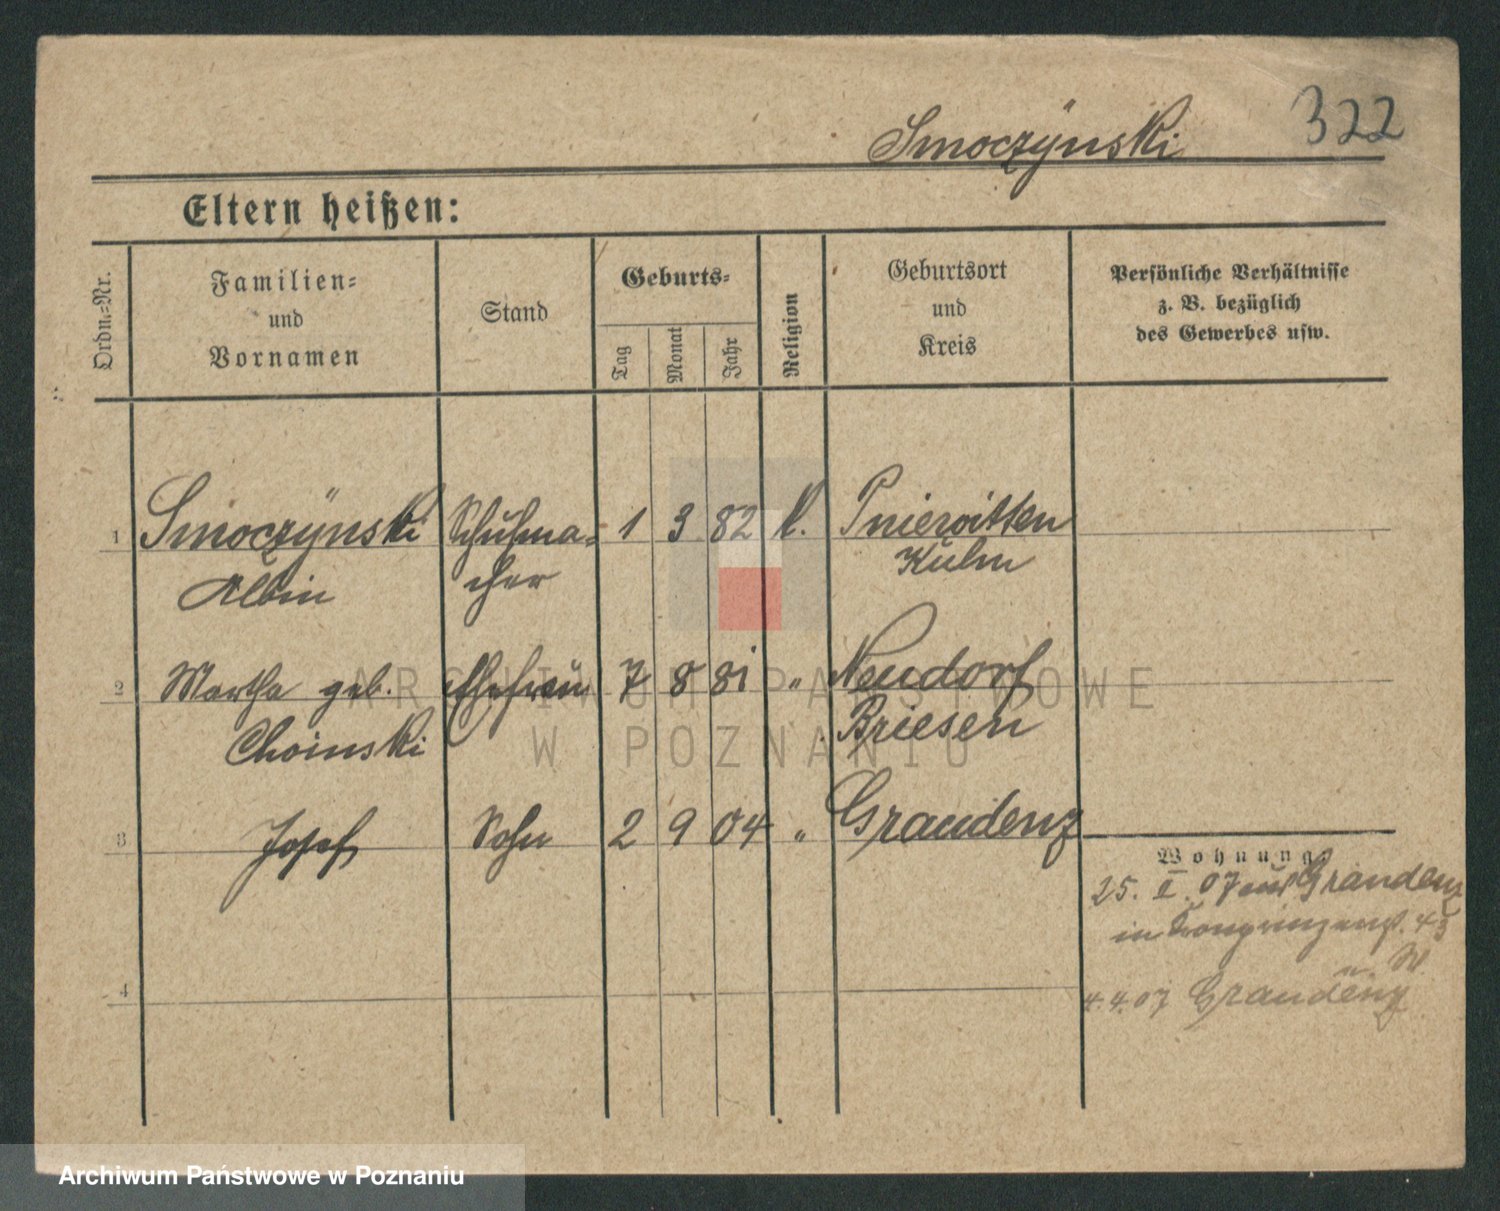 322
Smoczÿnski
Eltern heißen:
Ordn.=Nr.
Familien=
und
Vornamen
Stand
Geburts=
Tag
Monat
Jahr
Religion
Geburtsort
und
Kreis
Persönliche Verhältnisse
z. B. bezüglich
des Gewerbes usw.
1 Smoczÿnski Schuhma= 1 3 82 k. Pniewitten
Albin cher Kulm
2 Martha geb. Ehefrau 7 8 81 " Neudorf
Choinski Briesen
3 Josef Sohn 2 9 04 " Graudenz
Wohnung:
25. II. 07 aus Graudenz
in Kronprinzenst. 4
4
4.4.07 Graudenz
ARCHIWUM PAŃSTWOWE
W POZNANIU
Archiwum Państwowe w Poznaniu